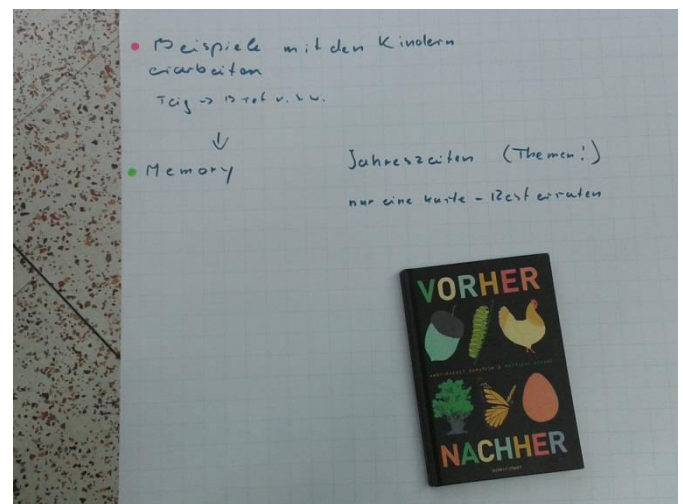 • Beispiele mit den Kindern
erarbeiten
Teig -> Brot u.s.w.
↓
• Memory
Jahreszeiten (Themen!)
nur eine Karte - Rest erraten
VORHER
NACHHER